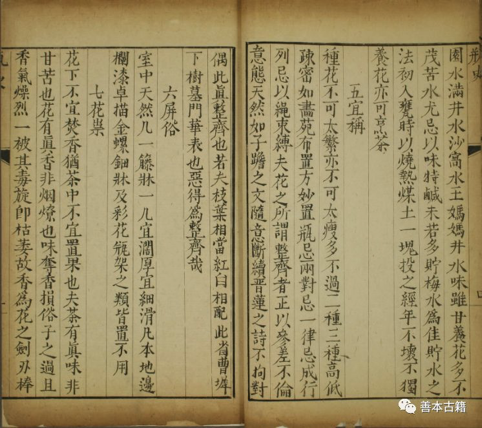 瓶史
園水滿井水沙窩水王媽媽井水味雖甘養花多不
茂苦水尤忌以味特鹹未若多貯梅水爲佳貯水之
法初入甕時以燒熱煤土一塊投之經年不壞不獨
養花亦可烹茶
五宜稱
種花不可太繁亦不可太瘦多不過二種三種高低
踈密如畵苑布置方妙置瓶忌兩對忌一律忌成行
列忌以繩束縛夫花之所謂整齊者正以參差不倫
意態天然如子瞻之文隨意斷續青蓮之詩不拘對
偶此眞整齊也若夫枝葉相當紅白相配此省曹墀
下樹墓門華表也惡得爲整齊哉
六屏俗
室中天然几一籐牀一几宜濶厚宜細滑凡本地邊
欄漆卓描金螺鈿牀及彩花瓶架之類皆置不用
七花祟
花下不宜焚香猶茶中不宜置果也夫茶有眞味非
甘苦也花有眞香非烟燎也味奪香損俗子之過且
香氣燥烈一被其毒旋即枯萎故香爲花之劍刃棒
善本古籍